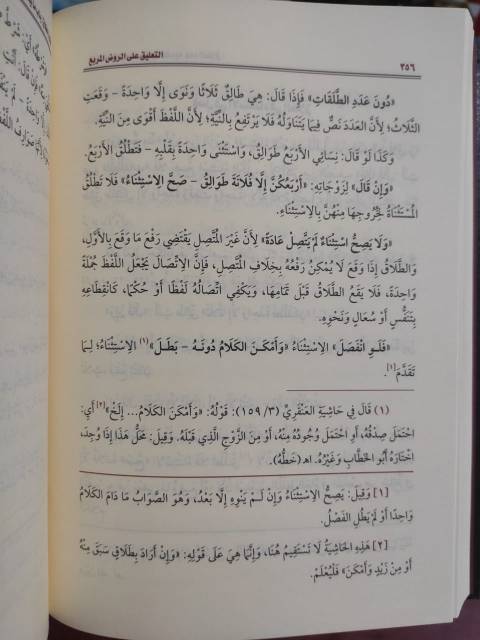 ٣٥٦
التعليق على الروض المربع
«دُونَ عَدَدِ الطَّلَقَاتِ» فَإِذَا قَالَ: هِيَ طَالِقٌ ثَلَاثًا وَنَوَى إِلَّا وَاحِدَةً – وَقَعَتِ
الثَّلَاثُ؛ لِأَنَّ العَدَدَ نَصٌّ فِيمَا يَتَنَاوَلُهُ فَلَا يَرْتَفِعُ بِالنِّيَّةِ؛ لِأَنَّ اللَّفْظَ أَقْوَى مِنَ النِّيَّةِ.
وَكَذَا لَوْ قَالَ: نِسَائِي الأَرْبَعُ طَوَالِقُ، وَاسْتَثْنَى وَاحِدَةً بِقَلْبِهِ – فَتَطْلُقُ الأَرْبَعُ.
«وَإِنْ قَالَ» لِزَوْجَاتِهِ: «أَرْبَعُكُنَّ إِلَّا فُلَانَةَ طَوَالِقُ – صَحَّ الِاسْتِثْنَاءُ» فَلَا تَطْلُقُ
الْمُسْتَثْنَاةُ لِخُرُوجِهَا مِنْهُنَّ بِالِاسْتِثْنَاءِ.
«وَلَا يَصِحُّ اسْتِثْنَاءٌ لَمْ يَتَّصِلْ عَادَةً» لِأَنَّ غَيْرَ الْمُتَّصِلِ يَقْتَضِي رَفْعَ مَا وَقَعَ بِالأَوَّلِ،
وَالطَّلَاقُ إِذَا وَقَعَ لَا يُمْكِنُ رَفْعُهُ بِخِلَافِ الْمُتَّصِلِ، فَإِنَّ الِاتِّصَالَ يَجْعَلُ اللَّفْظَ جُمْلَةً
وَاحِدَةً، فَلَا يَقَعُ الطَّلَاقُ قَبْلَ تَمَامِهَا، وَيَكْفِي اتِّصَالُهُ لَفْظًا أَوْ حُكْمًا، كَانْقِطَاعِهِ
بِتَنَفُّسٍ أَوْ سُعَالٍ وَنَحْوِهِ.
«فَلَوِ انْفَصَلَ» الِاسْتِثْنَاءُ «وَأَمْكَنَ الْكَلَامُ دُونَهُ – بَطَلَ»(١) الِاسْتِثْنَاءُ؛ لِمَا
تَقَدَّمَ[١].
(١) قَالَ فِي حَاشِيَةِ العَنْقَرِيِّ (٣/ ١٥٩): قَوْلُهُ: «وَأَمْكَنَ الكَلَامُ... إِلَخْ»[٢] أَيْ:
احْتَمَلَ صِدْقُهُ، أَوِ احْتَمَلَ وُجُودُهُ مِنْهُ، أَوْ مِنَ الزَّوْجِ الَّذِي قَبْلَهُ. وَقِيلَ: مَحَلُّ هَذَا إِذَا وُجِدَ،
اخْتَارَهُ أَبُو الخَطَّابِ وَغَيْرُهُ. اهـ (خَطُّهُ).
[١] وَقِيلَ: يَصِحُّ الِاسْتِثْنَاءُ وَإِنْ لَمْ يَنْوِهِ إِلَّا بَعْدُ، وَهُوَ الصَّوَابُ مَا دَامَ الكَلَامُ
وَاحِدًا أَوْ لَمْ يَطُلِ الفَصْلُ.
[٢] هَذِهِ الحَاشِيَةُ لَا تَسْتَقِيمُ هُنَا، وَإِنَّمَا هِيَ عَلَى قَوْلِهِ: «وَإِنْ أَرَادَ بِطَلَاقٍ سَبَقَ مِنْهُ
أَوْ مِنْ زَيْدٍ وَأَمْكَنَ» فَلْيُعْلَمْ.